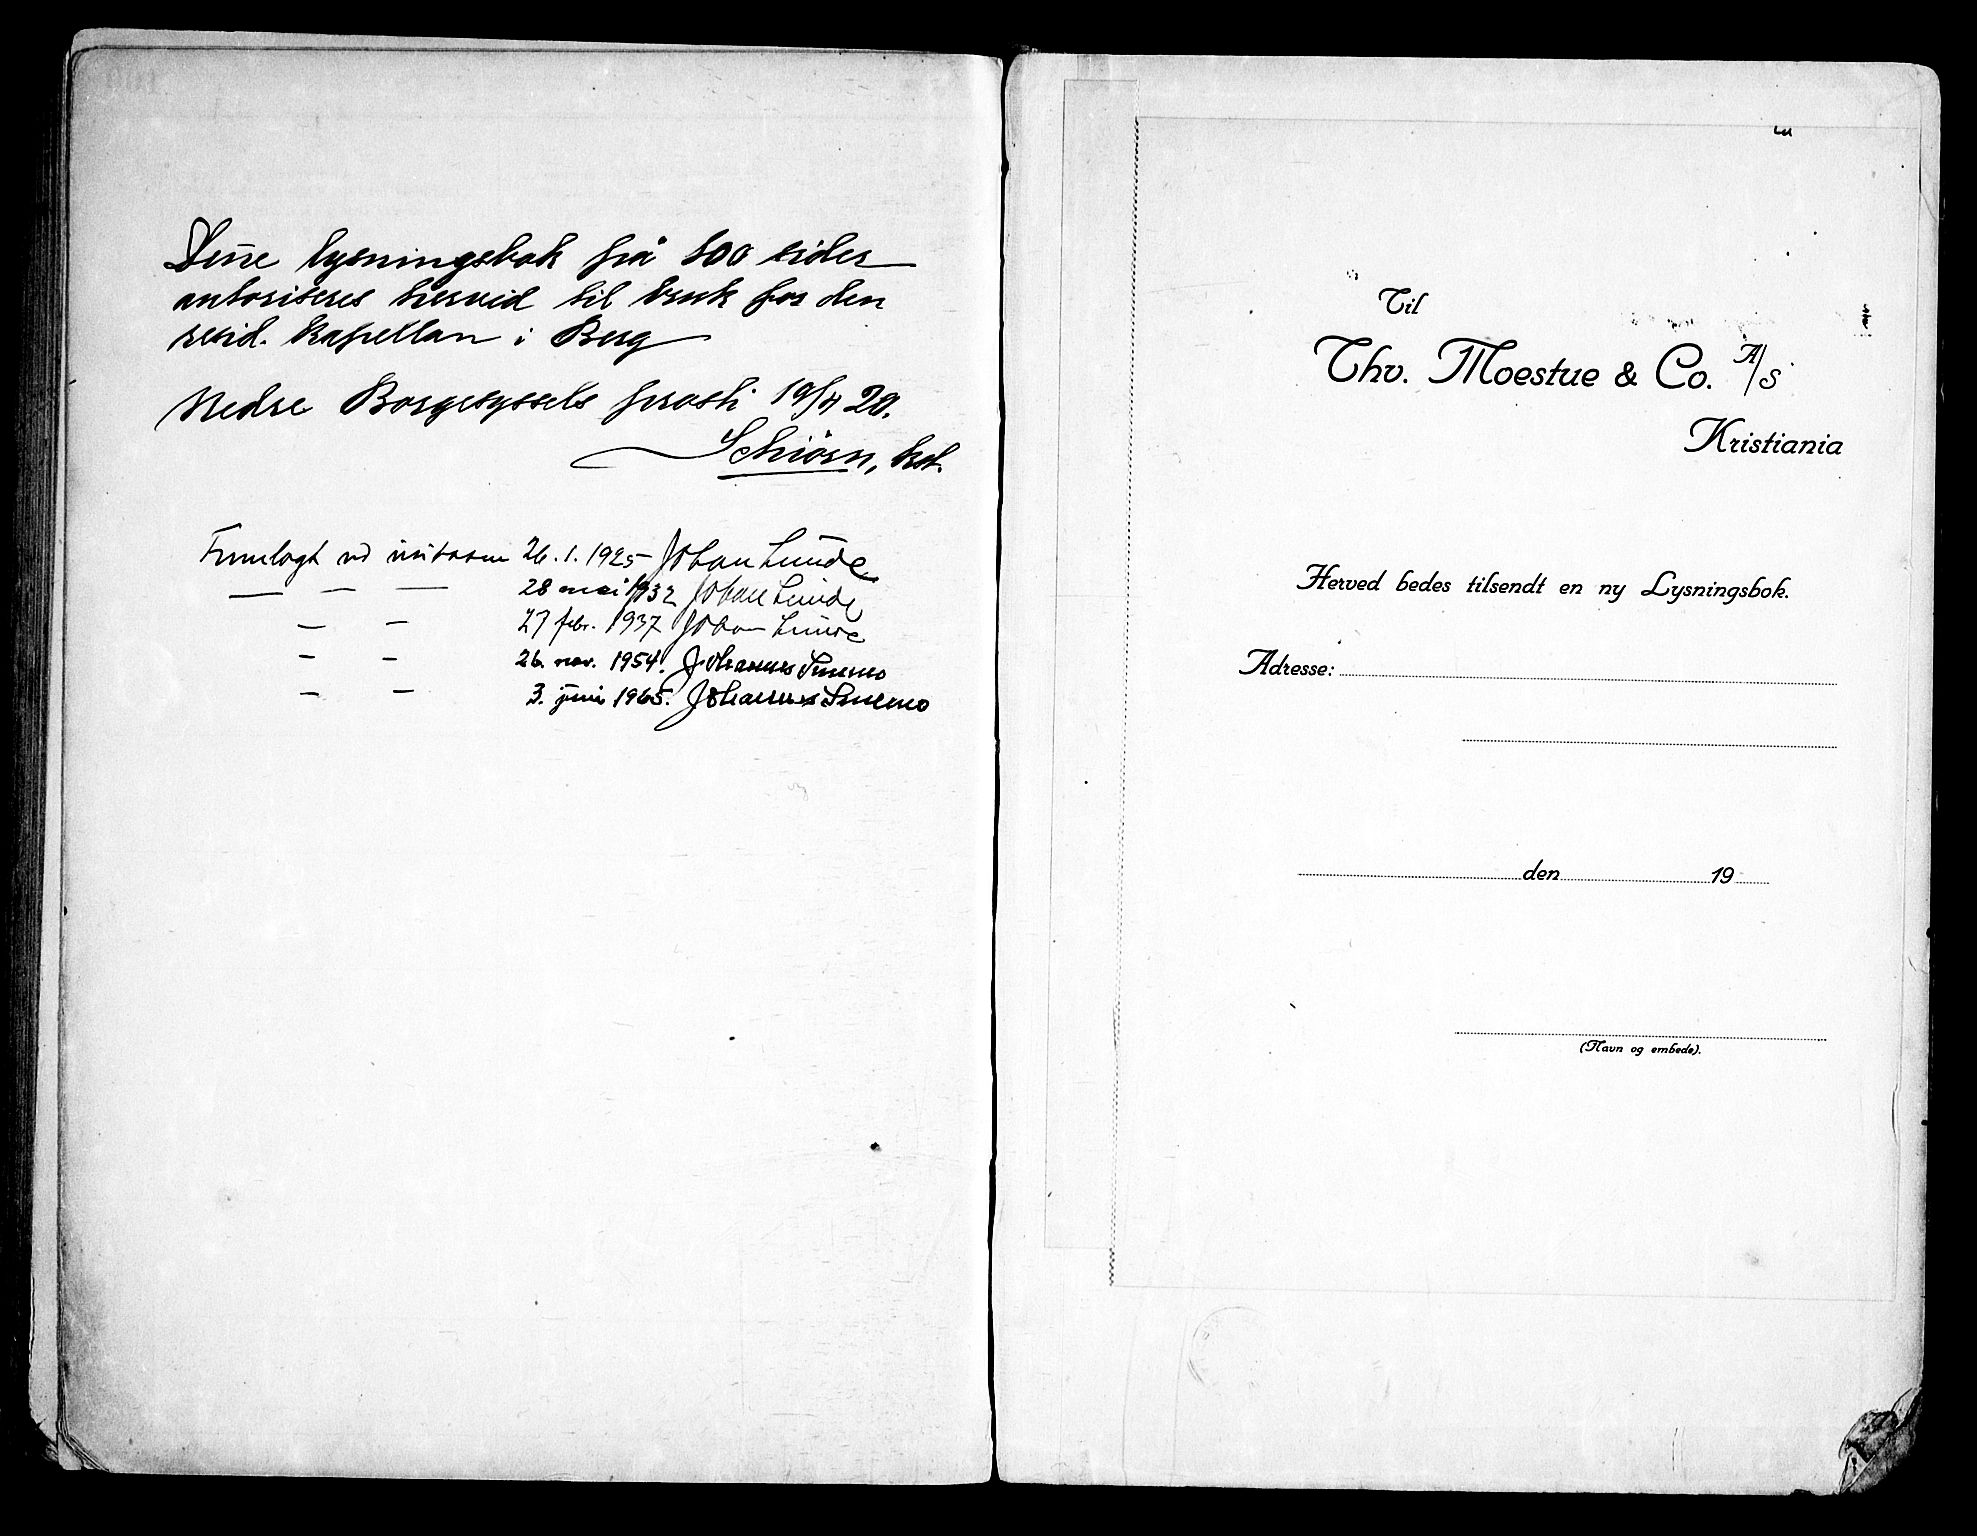 Denne lysningsbok på 100 sider
autoriseres herved til bruk for den
resid. kapellan i Berg
Nedre Borgesyssels prosti 19/4 20.
Schiörn, kst.
Fremlagt ved visitasen 26.1.1925 Johan Lunde
— — — 28 mai 1932 Johan Lunde
— — 27 febr. 1937 Johan Lunde
— — 26. nov. 1954. Johannes Smemo
— — 3. juni 1965. Johannes Smemo
Til
Thv. Moestue & Co. A/S
Kristiania
Herved bedes tilsendt en ny Lysningsbok.
Adresse:
den 19
(Navn og embede).